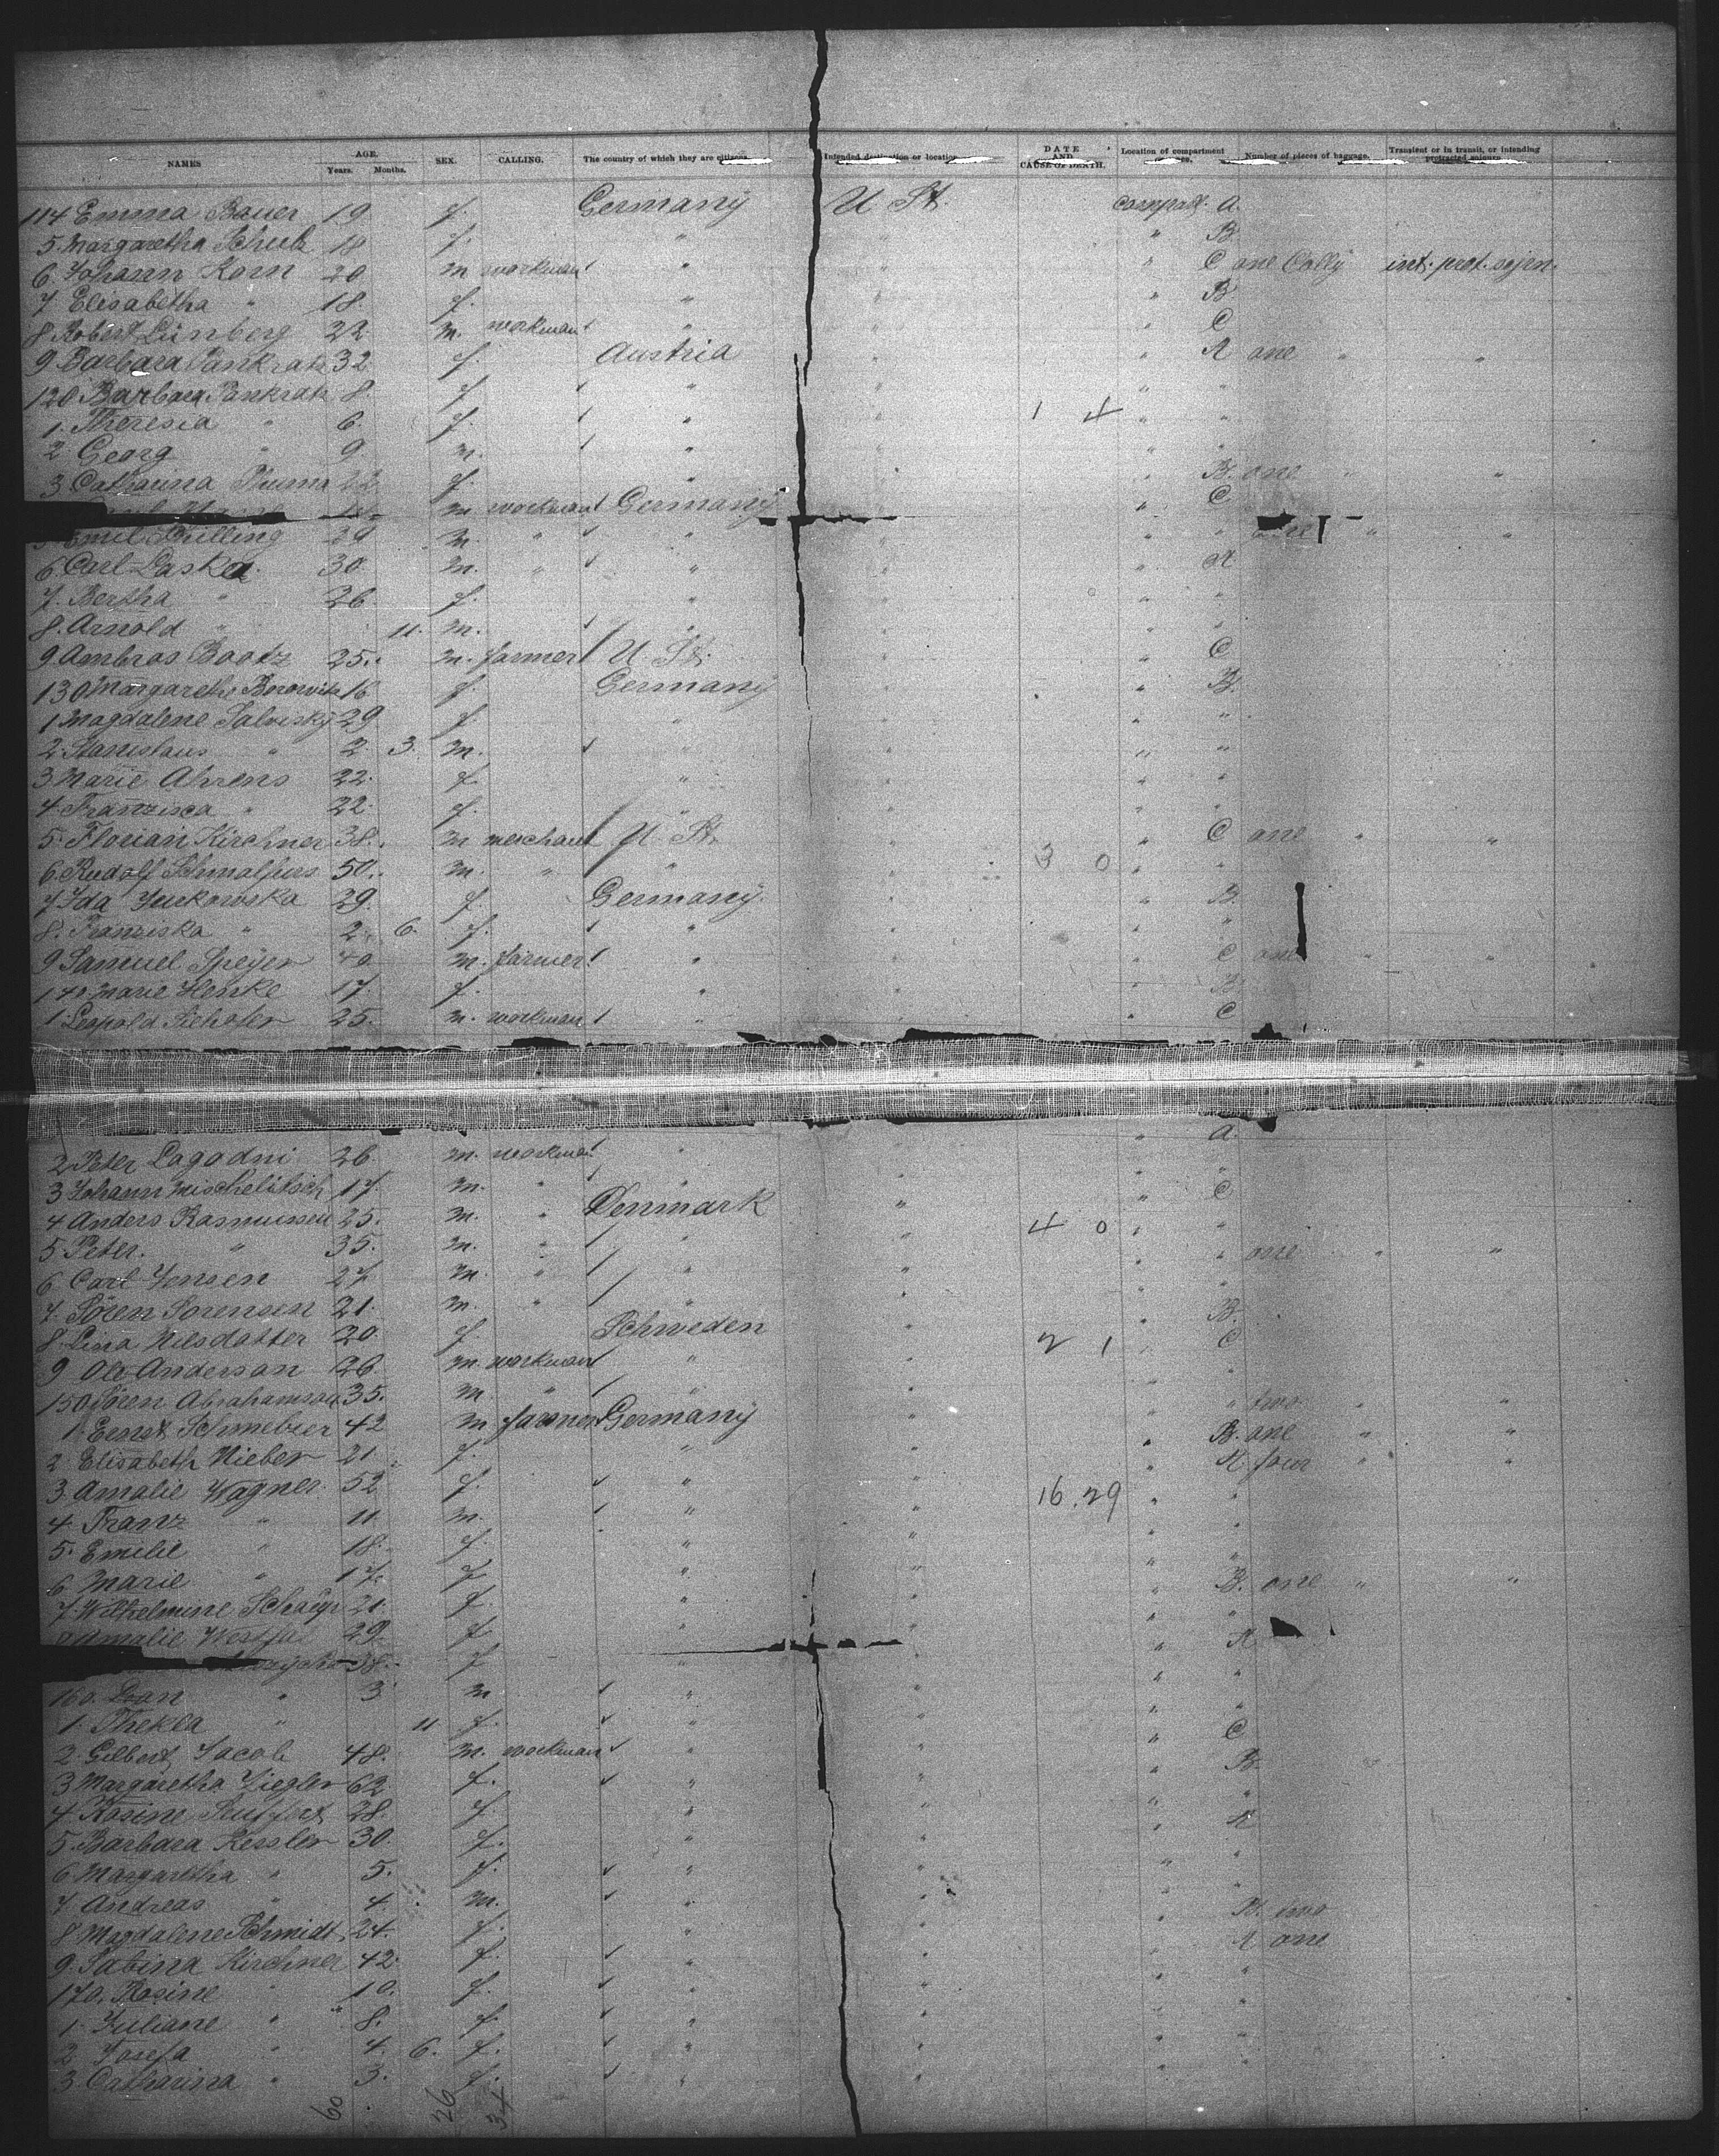 NAMES AGE. Years. Months. SEX. CALLING. The country of which they are citizens. Intended destination or location. DATE AND CAUSE OF DEATH. Location of compartment Number of pieces of baggage. Transient or in transit, or intending protracted sojourn.
114 Emma Bauer 19 f. Germany U St. compart. A.
5. Margaretha 18 f. " " " B.
6 Johann Korn 20 m workman " " " C one Colly int. prot. sojen.
7 Elisabetha " 18. f. " " " B.
8 Robert Lünberg 22. m. workman " " " C
9 Barbara Pankratz 32 f. Austria " " A one " "
120 Barbara Pankratz 8. f. " " " "
1. Theresia " 6. f. " " 1 4 " "
2 Georg " 9. m. " " " "
3 Catharina 22 f. " " " B. one " "
m workman Germany " " C
5 Emil 29 m. " " " " " one " "
6. Carl Laska. 30. m. " " " " A.
7. Bertha " 26. f. " " " "
8. Arnold " 11. m. " " " "
9 Ambros Bootz 25. m. farmer U. St. " " C
130 Margarethe Borowitz 16 f. Germany " " B.
1 Magdalene Salvisky 29 f. " " " "
2. Stanislaus " 2. 3. m. " " " "
3 Marie Ahrens 22. f. " " " "
4. Franzisca " 22. f. " " " "
5. Florian Kirchner 38. m merchant U. St. " " C one " "
6. Rudolf Schmalfuss 50. m. " " " 3 0 " "
7 Ida Jurkowska 29. f. Germany. " " B.
8. Franziska " 2. 6. f. " " " "
9 Samuel Speyer 40 m. farmer " " " C one " "
140 Marie Henke 17 f. " " " B
1. Leopold 25. m. workman " " " C
2 Peter Lagodni 26. m. workman " " " A.
3 Johann Mischelitsch 17. m. " " " " "
4 Anders Rasmussen 25. m. " Denmark " " C
5 Peter. " 35. m. " " " 4 0 " "
6 Carl Jensen 27 m. " " " " " one " "
7. Sören Sorensen 21. m. " " " " "
8. Lina Nilsdatter 20. f. Schweden " " B.
9 Ole Anderson 26. m. workman " " 2 1 " C
150 Sören Abrahamson 35. m. " " " " "
1. Ernst 42 m farmer Germany " " " two " "
2 Elisabeth Nieber 21. f. " " " B. one " "
3. Amalie Wagner. 52 f. " " " A four " "
4. Franz " 11. m. " " 16 . 29 " "
5. Emilie " 18. f. " " " "
6 Marie " 17. f. " " " "
7. Wilhelmine 21. f. " " " B. one " "
Amalie 29. f. " " " "
38. f " " " A
160. " 3 m " " " "
1. Thekla " 11 f. " " " "
2. Gilbert Jacob 48. m. workman " " " C
3 Margaretha Ziegler 62. f. " " " B.
4. Rosine Seuffert 28. f. " " " "
5. Barbara Kessler 30. f. " " " A
6 Margaretha " 5. f. " " " "
7. Andreas " 4. m. " " " "
8. Magdalene Schmidt 24. f. " " " B. two
9. Sabina Kirchner 42. f. " " " A one
170. Rosine " 10. f. " " " "
1. Juliane " 8. f. " " " "
2 Josefa " 4. 6. f. " " " "
3. Catharina " 3. f. " " " "
60 26 34